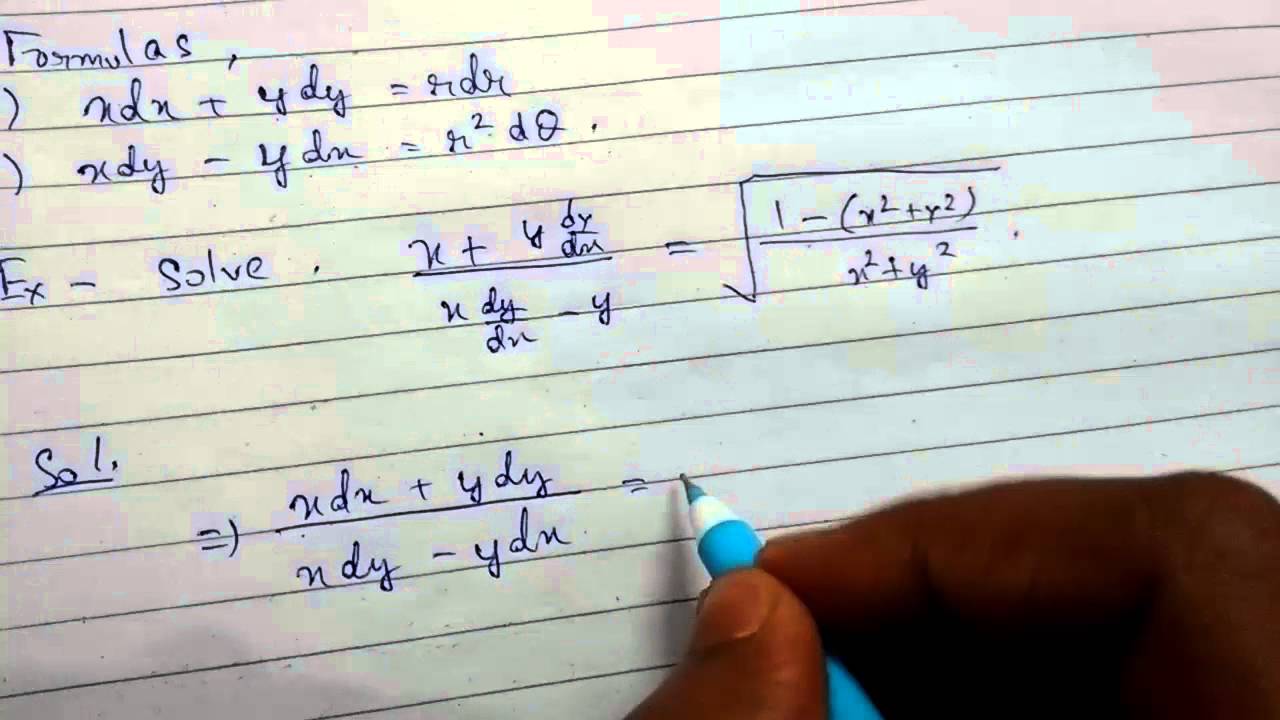 Formulas,
) xdx + ydy = rdr
) xdy - ydx = r² dθ.
Ex - Solve. (x + y dy/dx)/(x dy/dx - y) = √((1 - (x² + y²))/(x² + y²)).
Sol.
⇒) (xdx + ydy)/(xdy - ydx) =